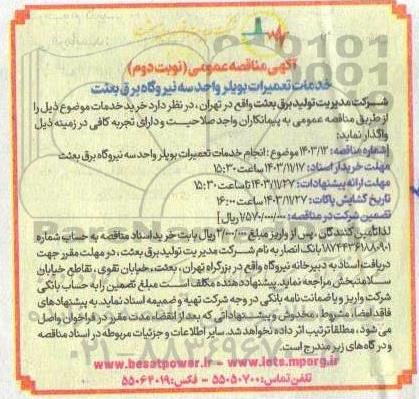 آگهی مناقصه عمومی (نوبت دوم)
خدمات تعمیرات بویلر واحد سه نیروگاه برق بعثت
شرکت مدیریت تولید برق بعثت واقع در تهران، در نظر دارد خرید خدمات موضوع ذیل را
از طریق مناقصه عمومی به پیمانکاران واجد صلاحیت و دارای تجربه کافی در زمینه ذیل
واگذار نماید:
[شماره مناقصه: ۱۴۰۳/۱۲ موضوع: انجام خدمات تعمیرات بویلر واحد سه نیروگاه برق بعثت
مهلت خرید اسناد: ۱۴۰۳/۱۱/۱۷ ساعت ۱۵:۳۰
مهلت ارائه پیشنهادات: ۱۴۰۳/۱۱/۲۷ تا ساعت ۱۵:۳۰
تاریخ گشایش پاکات: ۱۴۰۳/۱۱/۲۷ ساعت ۱۶:۰۰
تضمین شرکت در مناقصه: ۲/۵۷۰/۰۰۰/۰۰۰ ریال]
لذا تأمین کنندگان، پس از واریز مبلغ ۲/۰۰۰/۰۰۰ ریال بابت خرید اسناد مناقصه به حساب شماره
۱۸۷۴۴۳۶۱۸۸۰۹۰۱ بانک انصار به نام شرکت مدیریت تولید برق بعثت، در مهلت مقرر جهت
دریافت اسناد به دبیرخانه نیروگاه واقع در بزرگراه تهران، بعثت، خیابان تقوی، تقاطع خیابان
سلامتبخش مراجعه نماید. پیشنهاد دهنده مکلف است مبلغ تضمین را به حساب بانکی
شرکت واریز و یا ضمانت نامه بانکی در وجه شرکت تهیه و ضمیمه اسناد نماید. به پیشنهادهای
فاقد امضا، مشروط، مخدوش و پیشنهاداتی که بعد از انقضاء مدت مقرر در فراخوان واصل
می شود، مطلقا ترتیب اثر داده نخواهد شد. سایر اطلاعات و جزئیات مربوطه در اسناد مناقصه
و درگاه های زیر مندرج است.
www.besatpower.ir - www.iets.mporg.ir
تلفن تماس: ۵۵۰۵۰۷۰۰ - فکس: ۵۵۰۶۴۰۱۹